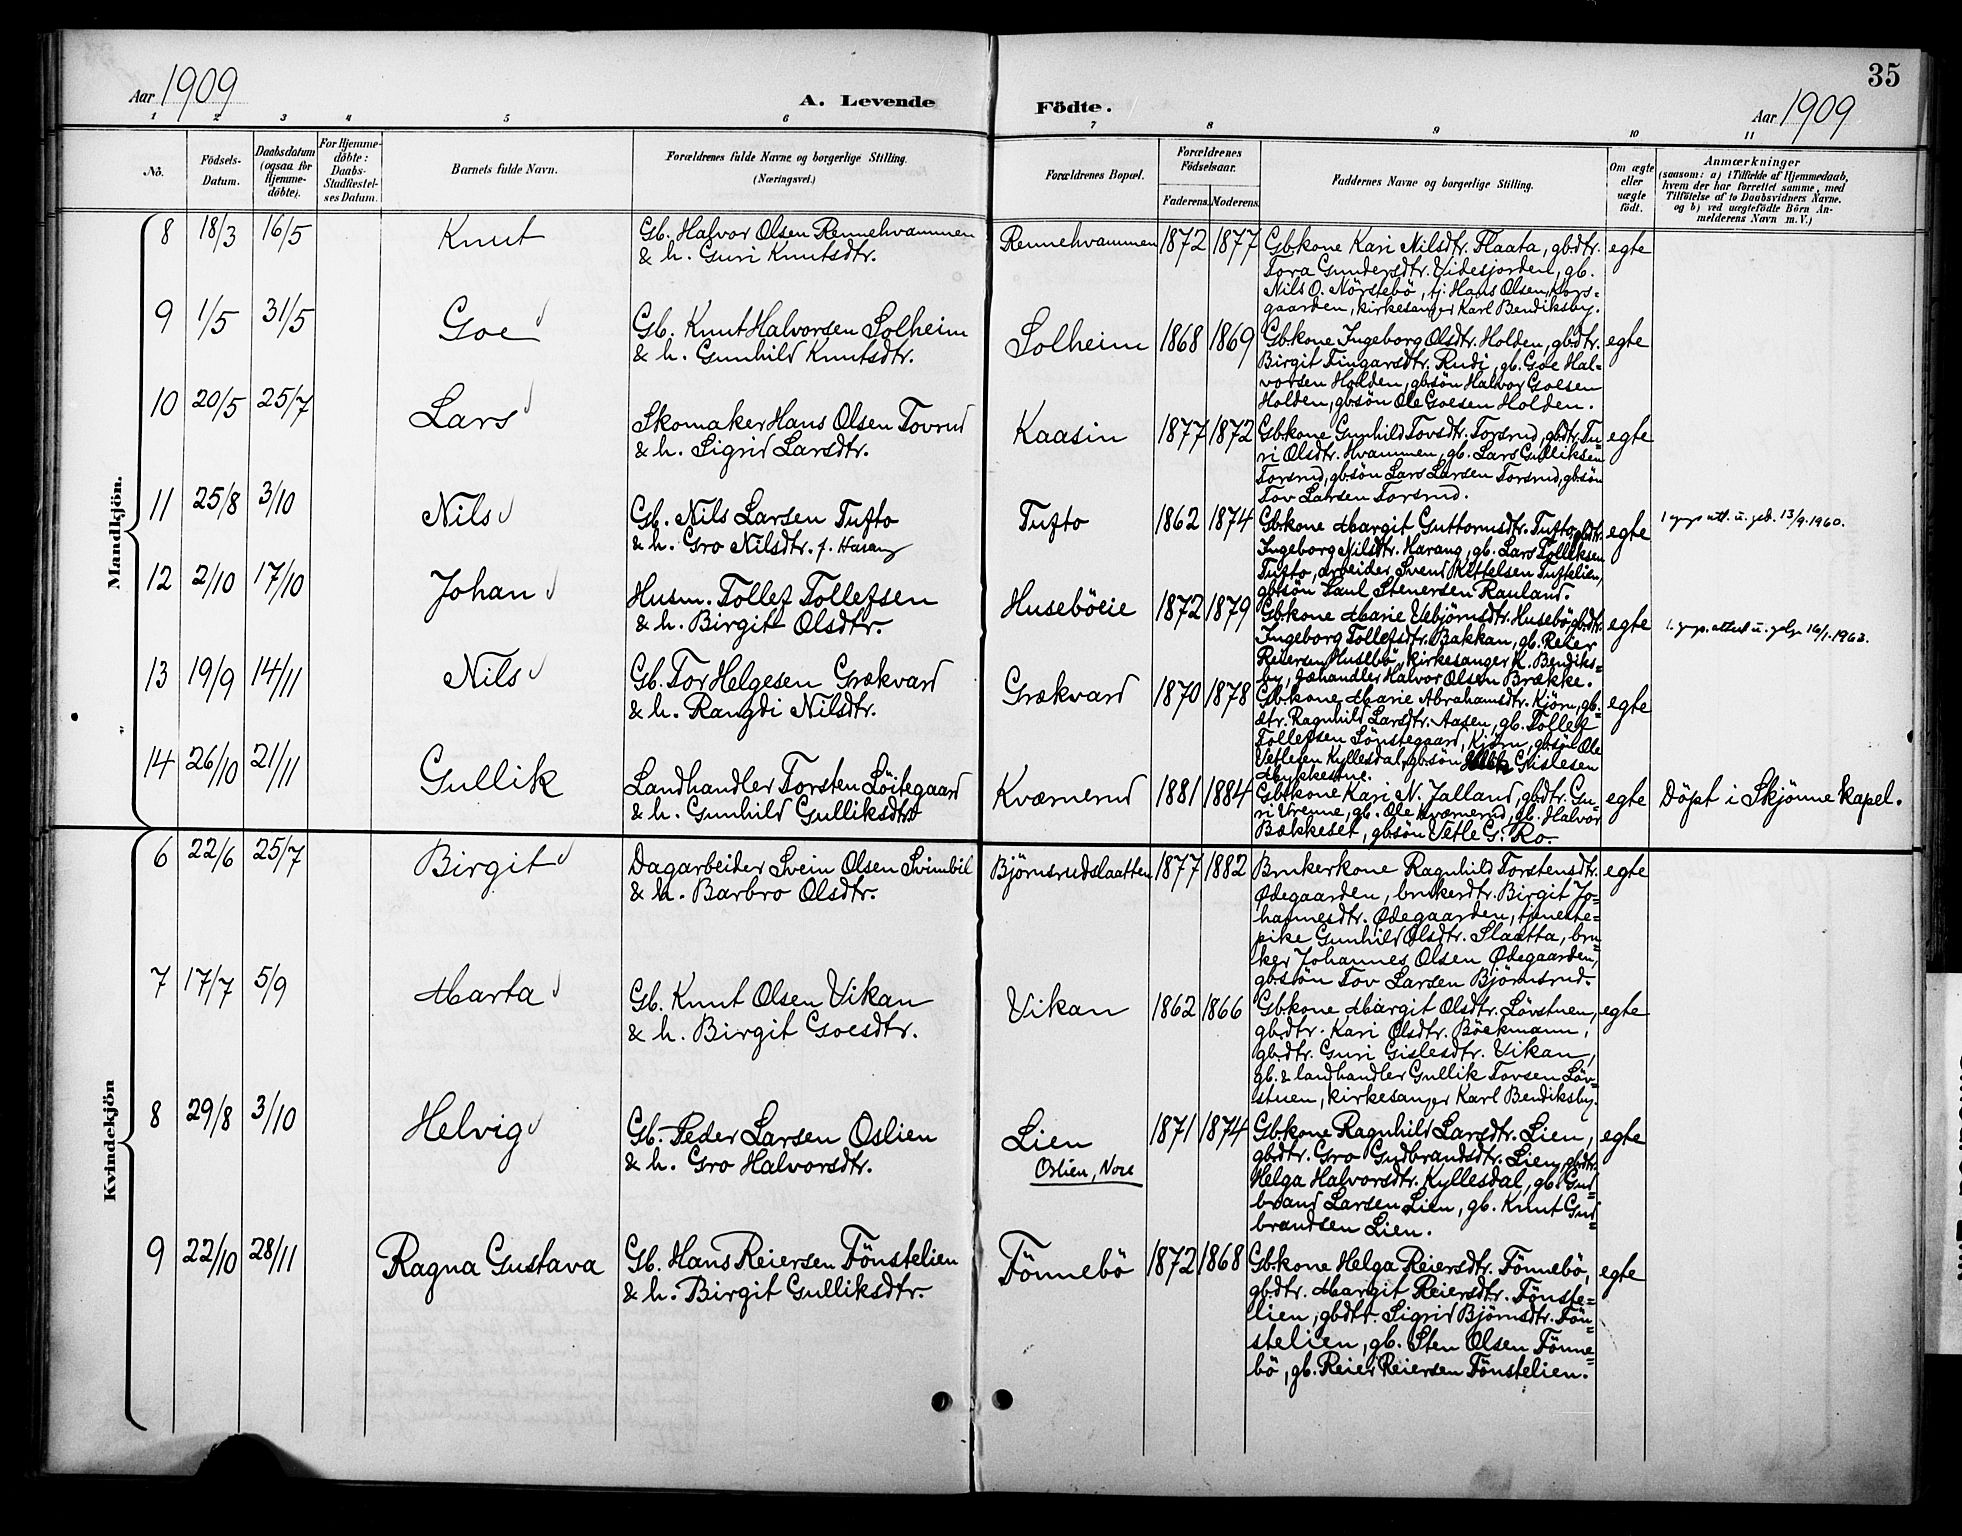 35
Aar 1909
A. Levende
Födte.
Aar 1909
1 2 3 4 5 6 7 8 9 10 11
No.
Födsels-
Datum.
Daabsdatum
(ogsaa for
Hjemme-
döbte).
For Hjemme-
döbte:
Daabs-
Stadfæstel-
ses Datum.
Barnets fulde Navn.
Forældrenes fulde Navne og borgerlige Stilling.
(Næringsvei.)
Forældrenes Bopæl.
Forældrenes
Födselsaar.
Faderens. Moderens.
Faddernes Navne og borgerlige Stilling.
Om ægte
eller
uægte
födt.
Anmærkninger
(saasom: a) i Tilfælde af Hjemmedaab,
hvem der har forrettet samme, med
Tilföielse af to Daabsvidners Navne.
og b) ved uægtefödte Börn An-
melderens Navn m. V.)
Mandkjön.
8 18/3 16/5 Knut
Gb. Halvor Olsen Rennehvammen
& h. Guri Knutsdtr.
Rennehvammen 1872 1877
Gbkone Kari Nilsdtr. Flaata, gbdtr.
Tora Gundersdtr. Videsjorden, gb.
Nils O. Nörstebö, tj. Hans Olsen Kors-
gaarden, kirkesanger Karl Bendiksby.
egte
9 1/5 31/5 Goe
Gb. Knut Halvorsen Solheim
& h. Gunhild Knutsdtr.
Solheim 1868 1869
Gbkone Ingeborg Olsdtr. Holden, gbdtr.
Birgit Fingarsdtr. Rudi, gb. Goe Hal-
vorsen Holden, gbsön Halvor Goesen
Holden, gbsön Ole Goesen Holden.
egte
10 20/5 25/7 Lars
Skomaker Hans Olsen Tovrud
& h. Sigrid Larsdtr.
Kaasin 1877 1872
Gbkone Gunhild Tovsdtr. Torsrud, gbdtr. Tu-
ri Olsdtr. Hvammen, gb. Lars Gulliksen
Torsrud, gbsön Lars Larsen Torsrud, gbsön
Tov Larsen Torsrud.
egte
11 25/8 3/10 Nils
Gb. Nils Larsen Tufto
& h. Gro Nilsdtr. f. Harang
Tufto 1862 1874
Gbkone Margit Guttormsdtr. Tufto, gbdtr.
Ingeborg Nilsdtr. Harang, gb. Lars Tolleksen
Tufto, arbeider Svend Kittelsen Tuftelien,
gbsön Paul Stenersen Rauland.
egte
13/9-1960.
12 2/10 17/10 Johan
Husm. Tollef Tollefsen
& h. Birgit Olsdtr.
Huseböeie 1872 1879
Gbkone Marie Vebjörnsdtr. Husebö, gbdtr.
Ingeborg Tollefsdtr. Bakkan, gb. Reier
Reiersen Husebö, kirkesanger K. Bendiks-
by, fæhandler Halvor Olsen Brække.
egte
16/1-1963.
13 19/9 14/11 Nils
Gb. Tor Helgesen Grækvard
& h. Rangdi Nilsdtr.
Grækvard 1870 1878
Gbkone Marie Abrahamsdtr. Kjörn, gb.-
dtr. Ragnhild Larsdtr. Aasen, gb. Tollef
Tollefsen Sönstegaard, Kjörn, gbsön Ole
Vetlesen Kyllesdal, gbsön Gislesen
Mykkestue.
egte
14 26/10 21/11 Gullik
Landhandler Torsten Löitegaard
& h. Gunhild Gulliksdtr
Kværnerud 1881 1884
Gbkone Kari N. Jalland, gbdtr. Gu-
ri Vrenne, gb. Ole Kværnerud, gb. Halvor
Bækkeset, gbsön Vetle G. Ro.
egte Döpt i Skjönne kapel.
Kvindekjön
6 22/6 25/7 Birgit
Dagarbeider Svein Olsen Svimbil
& h. Barbro Olsdtr.
Björnsrudslaatten 1877 1882
Brukerkone Ragnhild Torstensdtr.
Ødegaarden, brukerdtr. Birgit Jo-
hannesdtr. Ødegaarden, tjeneste-
pike Gunhild Olsdtr. Slaatta, bru-
ker Johannes Olsen Ødegaarden,
gbsön Tov Larsen Björnsrud.
egte
7 17/7 5/9 Marta
Gb. Knut Olsen Vikan
& h. Birgit Goesdtr.
Vikan 1862 1866
Gbkone Margit Olsdtr. Lövstuen,
gbdtr. Kari Olsdtr. Böckmann,
gbdtr. Guri Gislesdtr. Vikan,
gb. & landhandler Gullik Tovsen Löv-
stuen, kirkesanger Karl Bendiksby.
egte
8 29/8 3/10 Helvig
Gb. Peder Larsen Oslien
& h. Gro Halvorsdtr.
Lien
Oslien, Nore
1871 1874
Gbkone Ragnhild Larsdtr. Lien,
gbdtr. Gro Gudbrandsdtr. Lien, gbdtr.
Helga Halvorsdtr. Kyllesdal, gb. Gud-
brand Larsen Lien, gb. Knut Gud-
brandsen Lien.
egte
9 22/10 28/11 Ragna Gustava
Gb. Hans Reiersen Fönstelien
& h. Birgit Gulliksdtr.
Fönnebö 1872 1868
Gbkone Helga Reiersdtr. Fönnebö,
gbdtr. Margit Reiersdtr. Fönste-
lien, gbdtr. Sigrid Björnsdtr. Fön-
stelien, gb. Sten Olsen Fönne-
bö, gb. Reier Reiersen Fönstelien.
egte